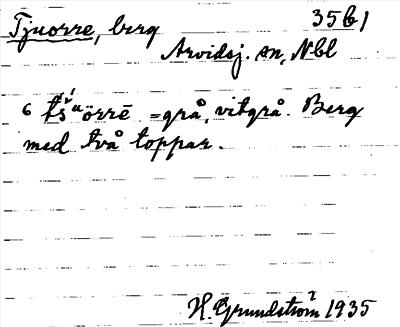 Tjuorre, berg 35b1
Arvidsj. sn, Nbl
6 tś́uörrē = grå, vitgrå. Berg
med två toppar.
H. Grundström 1935